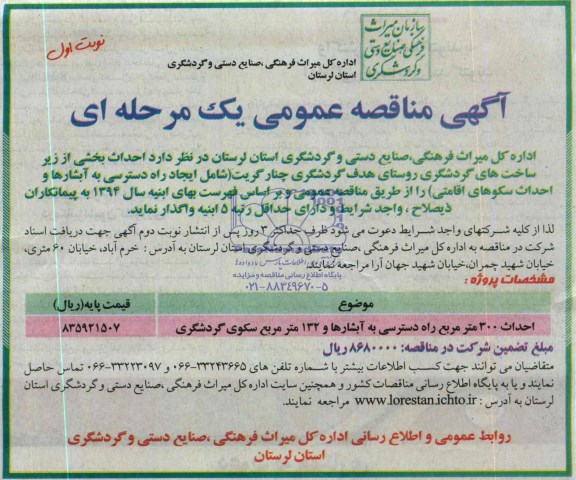 نوبت اول
سازمان میراث
فرهنگی صنایع دستی
و گردشگری
اداره کل میراث فرهنگی ،صنایع دستی وگردشگری
استان لرستان
آگهی مناقصه عمومی یک مرحله ای
اداره کل میراث فرهنگی،صنایع دستی و گردشگری استان لرستان در نظر دارد احداث بخشی از زیر
ساخت های گردشگری روستای هدف گردشگری چنار گریت(شامل ایجاد راه دسترسی به آبشارها و
احداث سکوهای اقامتی) را از طریق مناقصه عمومی و بر اساس فهرست بهای ابنیه سال ۱۳۹۴ به پیمانکاران
ذیصلاح ، واجد شرایط و دارای حداقل رتبه ۵ ابنیه واگذار نماید.
لذا از کلیه شرکتهای واجد شرایط دعوت می شود ظرف حداکثر ۳ روز پس از انتشار نوبت دوم آگهی جهت دریافت اسناد
شرکت در مناقصه به اداره کل میراث فرهنگی ،صنایع دستی و گردشگری استان لرستان به آدرس : خرم آباد، خیابان ۶۰ متری،
خیابان شهید چمران،خیابان شهید جهان آرا مراجعه نمایند.
پایگاه اطلاع رسانی مناقصه و مزایده
۰۲۱-۸۸۳۴۹۶۷۰-۵
مشخصات پروژه :
موضوع قیمت پایه(ریال)
احداث ۳۰۰ متر مربع راه دسترسی به آبشارها و ۱۳۲ متر مربع سکوی گردشگری ۸۳۵۹۲۱۵۰۷
مبلغ تضمین شرکت در مناقصه: ۸۶۸۰۰۰۰ ریال
متقاضیان می توانند جهت کسب اطلاعات بیشتر با شماره تلفن های ۳۳۲۴۳۶۶۵-۰۶۶ و ۳۳۲۲۳۰۹۷-۰۶۶ تماس حاصل
نمایند و یا به پایگاه اطلاع رسانی مناقصات کشور و همچنین سایت اداره کل میراث فرهنگی ،صنایع دستی و گردشگری استان
لرستان به آدرس : www.lorestan.ichto.ir مراجعه نمایند.
روابط عمومی و اطلاع رسانی اداره کل میراث فرهنگی ،صنایع دستی و گردشگری
استان لرستان